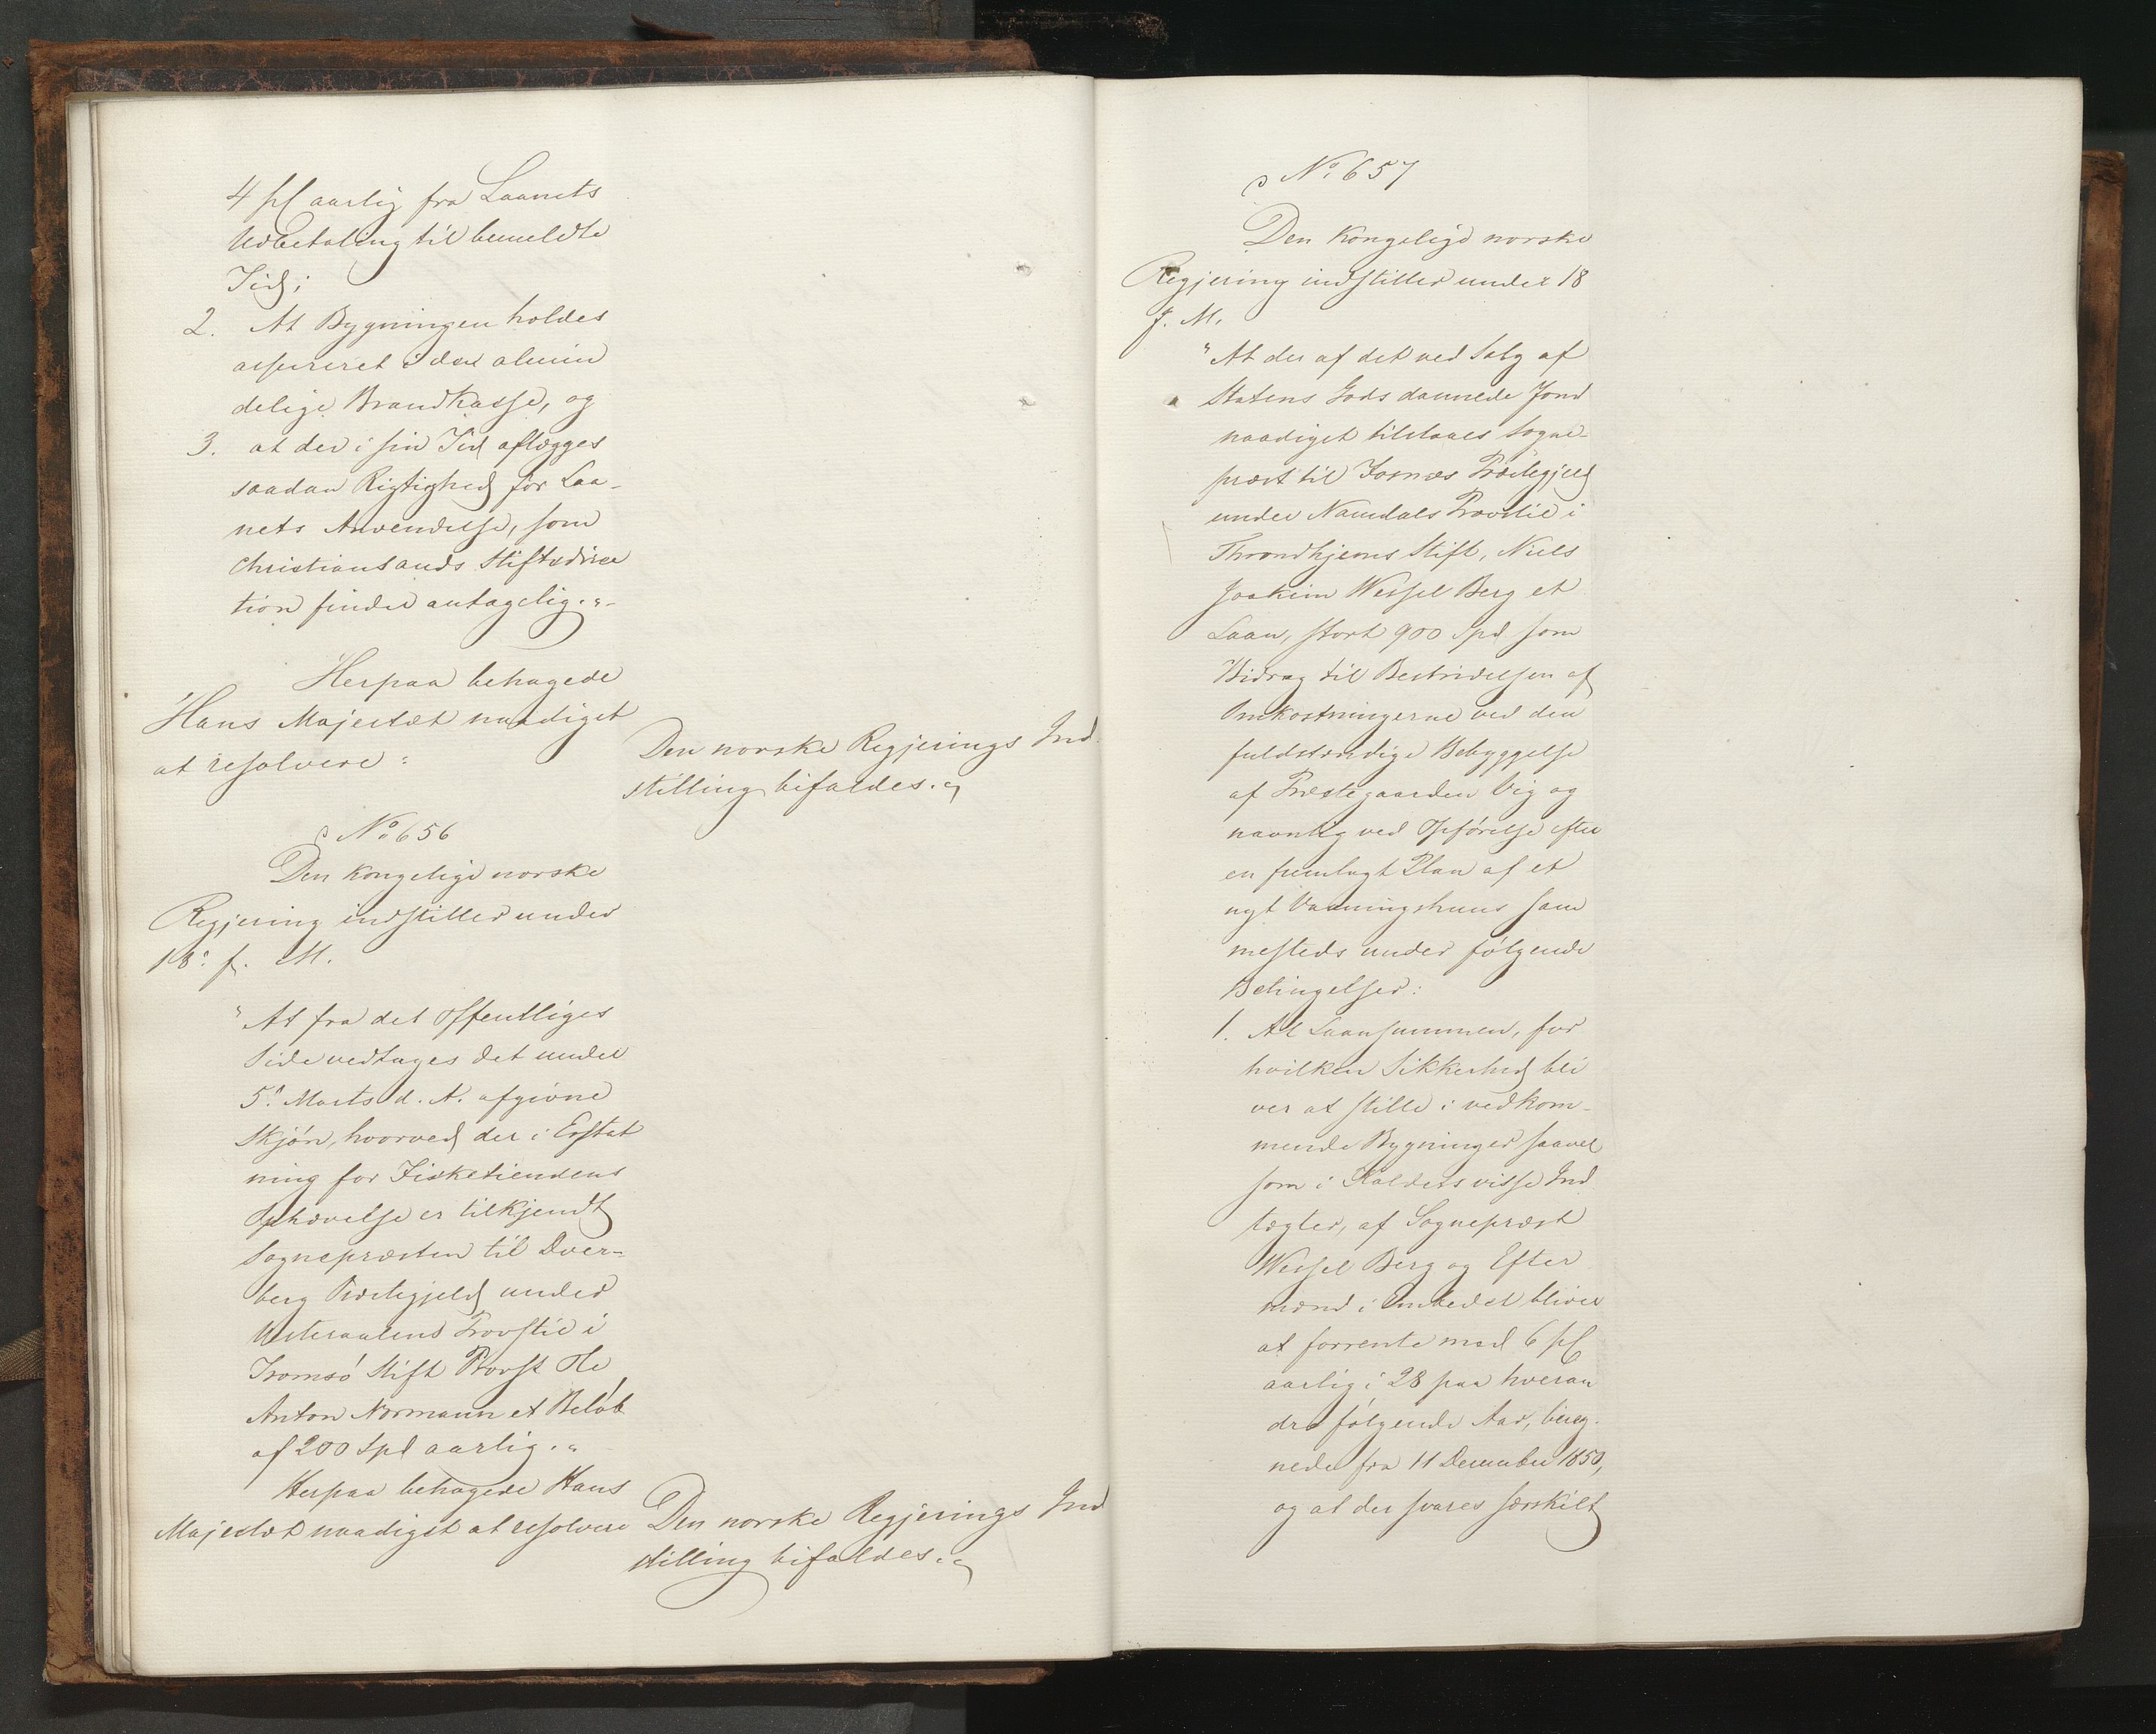 4 pCt aarlig fra Laanets
Udbetaling til bemeldte
Tid;
2. At Bygningen holdes
assureret i den almin
delige Brandkasse, og
3. at der i sin Tid aflægges
saadan Rigtighed for Laa-
nets Anvendelse, som
Christiansands Stiftsdirec
tion finder antagelig."-
Herpaa behagede
Hans Majestæt naadigst
at resolvere:
Den norske Regjerings Ind
stilling bifaldes."
No 656
Den kongelige norske
Regjering indstiller under
18. f. M.
"At fra det Offentliges
Side vedtages det under
5. Marts d. A. afgivne
Skjøn, hvorved der i Erstat
ning for Fisketiendens
Ophævelse er tilkjendt
Sognepræsten til Dver-
berg Præstegjeld under
Vesteraalens Provstie i
Tromsö Stift Provst Ole
Anton Normann et Beløb
af 200 Spd aarlig."
Herpaa behagede Hans
Majestæt naadigst at resolvere
Den norske Regjerings Ind
stilling bifaldes."
No 657
Den Kongelige norske
Regjering indstiller under 18
f. M.
"At der af det ved Salg af
Statens Gods dannede Fond
naadigst tilstaaes Sogne-
præst til Fosnæs Præstegjeld
under Namdals Provstie i
Throndhjems Stift, Niels
Joakim Wessel Berg et
Laan, stort 900 Spd som
Bidrag til Bestridelsen af
Omkostningerne ved den
fuldstændige Bebyggelse
af Præstegaarden Vig og
navnlig ved Opførelse efter
en fremlagt Plan af et
nyt Vaaningshuus sam
mesteds under følgende
Betingelser:
1. At Laansummen, for
hvilken Sikkerhed bli
ver at stille i vedkom-
mende Bygninger saavel
som i Kaldets visse Ind
tægter, af Sognepræst
Wessel Berg og Efter
mænd i Embedet bliver
at forrente med 6 pCt
aarlig i 28 paa hveran
dre følgende Aar, bereg-
nede fra 11 December 1850,
og at der svares særskilt